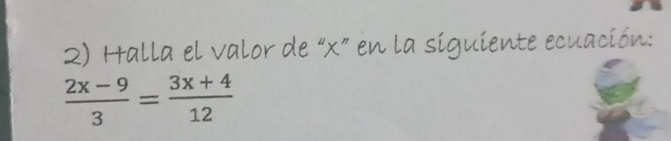 2) Halla el valor de "x" en la siguiente ecuación:
$\frac{2x - 9}{3} = \frac{3x + 4}{12}$